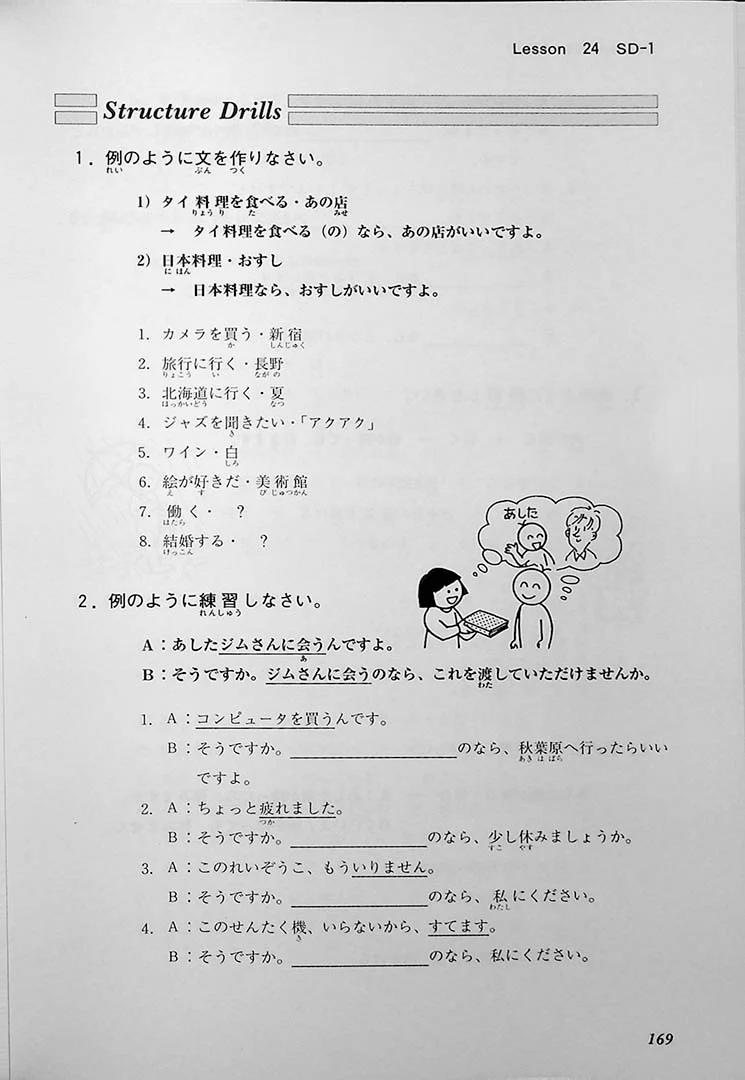 Lesson 24 SD-1
Structure Drills
1．例のように文を作りなさい。
れい ぶん つく
1) タイ料理を食べる・あの店
りょうり た みせ
→ タイ料理を食べる（の）なら、あの店がいいですよ。
2) 日本料理・おすし
にほん
→ 日本料理なら、おすしがいいですよ。
1. カメラを買う・新宿
か しんじゅく
2. 旅行に行く・長野
りょこう い ながの
3. 北海道に行く・夏
ほっかいどう なつ
4. ジャズを聞きたい・「アクアク」
き
5. ワイン・白
しろ
6. 絵が好きだ・美術館
え す びじゅつかん
7. 働く・ ？
はたら
8. 結婚する・ ？
けっこん
あした
2．例のように練習しなさい。
れんしゅう
A：あしたジムさんに会うんですよ。
あ
B：そうですか。ジムさんに会うのなら、これを渡していただけませんか。
わた
1. A：コンピュータを買うんです。
B：そうですか。＿＿＿＿＿＿＿＿のなら、秋葉原へ行ったらいい
あきはばら
ですよ。
2. A：ちょっと疲れました。
つか
B：そうですか。＿＿＿＿＿＿＿＿のなら、少し休みましょうか。
すこ やす
3. A：このれいぞうこ、もういりません。
B：そうですか。＿＿＿＿＿＿＿＿のなら、私にください。
わたし
4. A：このせんたく機、いらないから、すてます。
き
B：そうですか。＿＿＿＿＿＿＿＿のなら、私にください。
169